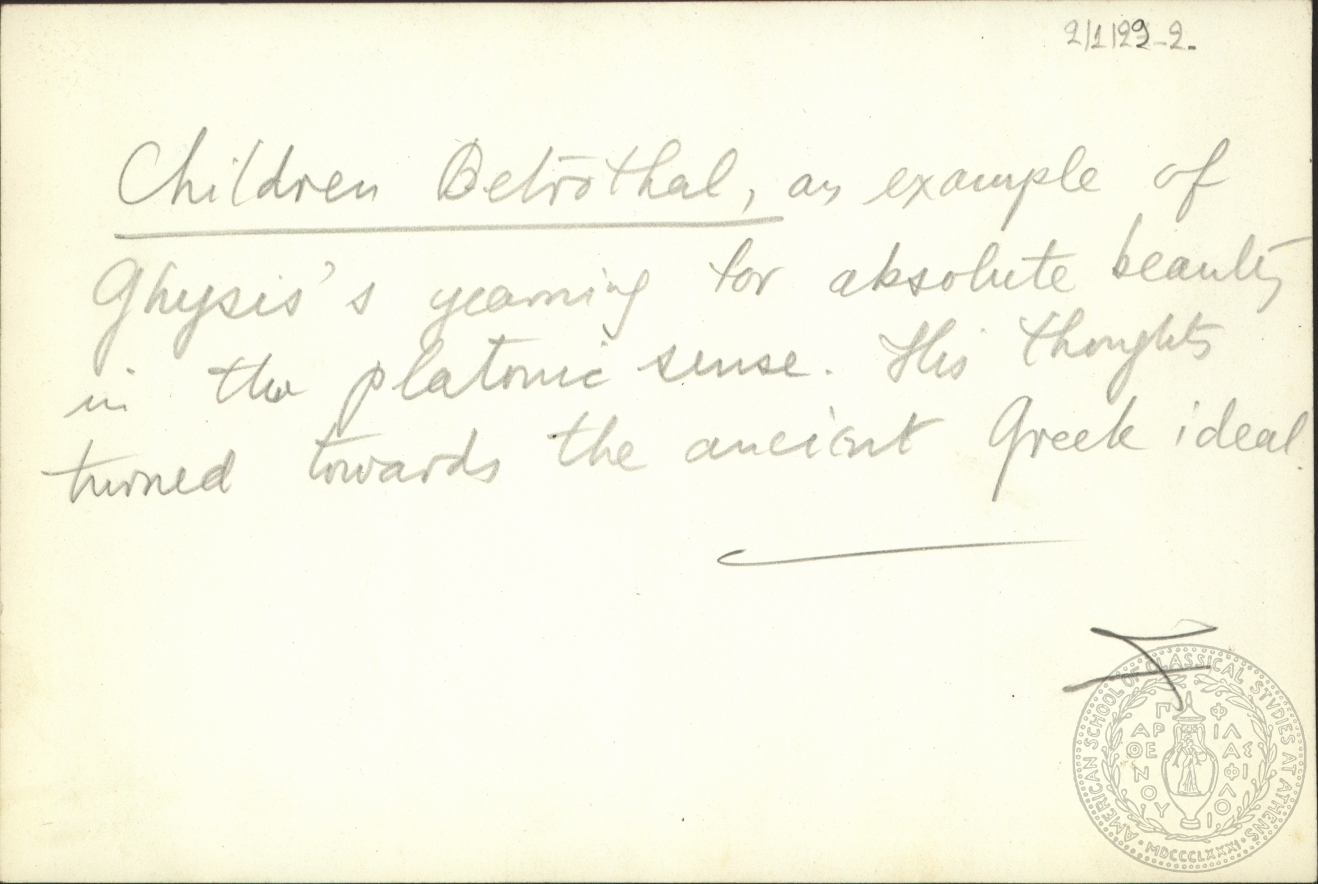 2/1/29-2.
Children Betrothal, as example of
Ghysis's yearning for absolute beauty
in the platonic sense. His thoughts
turned towards the ancient Greek ideal.
AMERICAN SCHOOL OF CLASSICAL STUDIES AT ATHENS
ΠΑΡΘΕΝΟΥ ΦΙΛΑΣ ΦΙΛΟΙ
MDCCCLXXXI